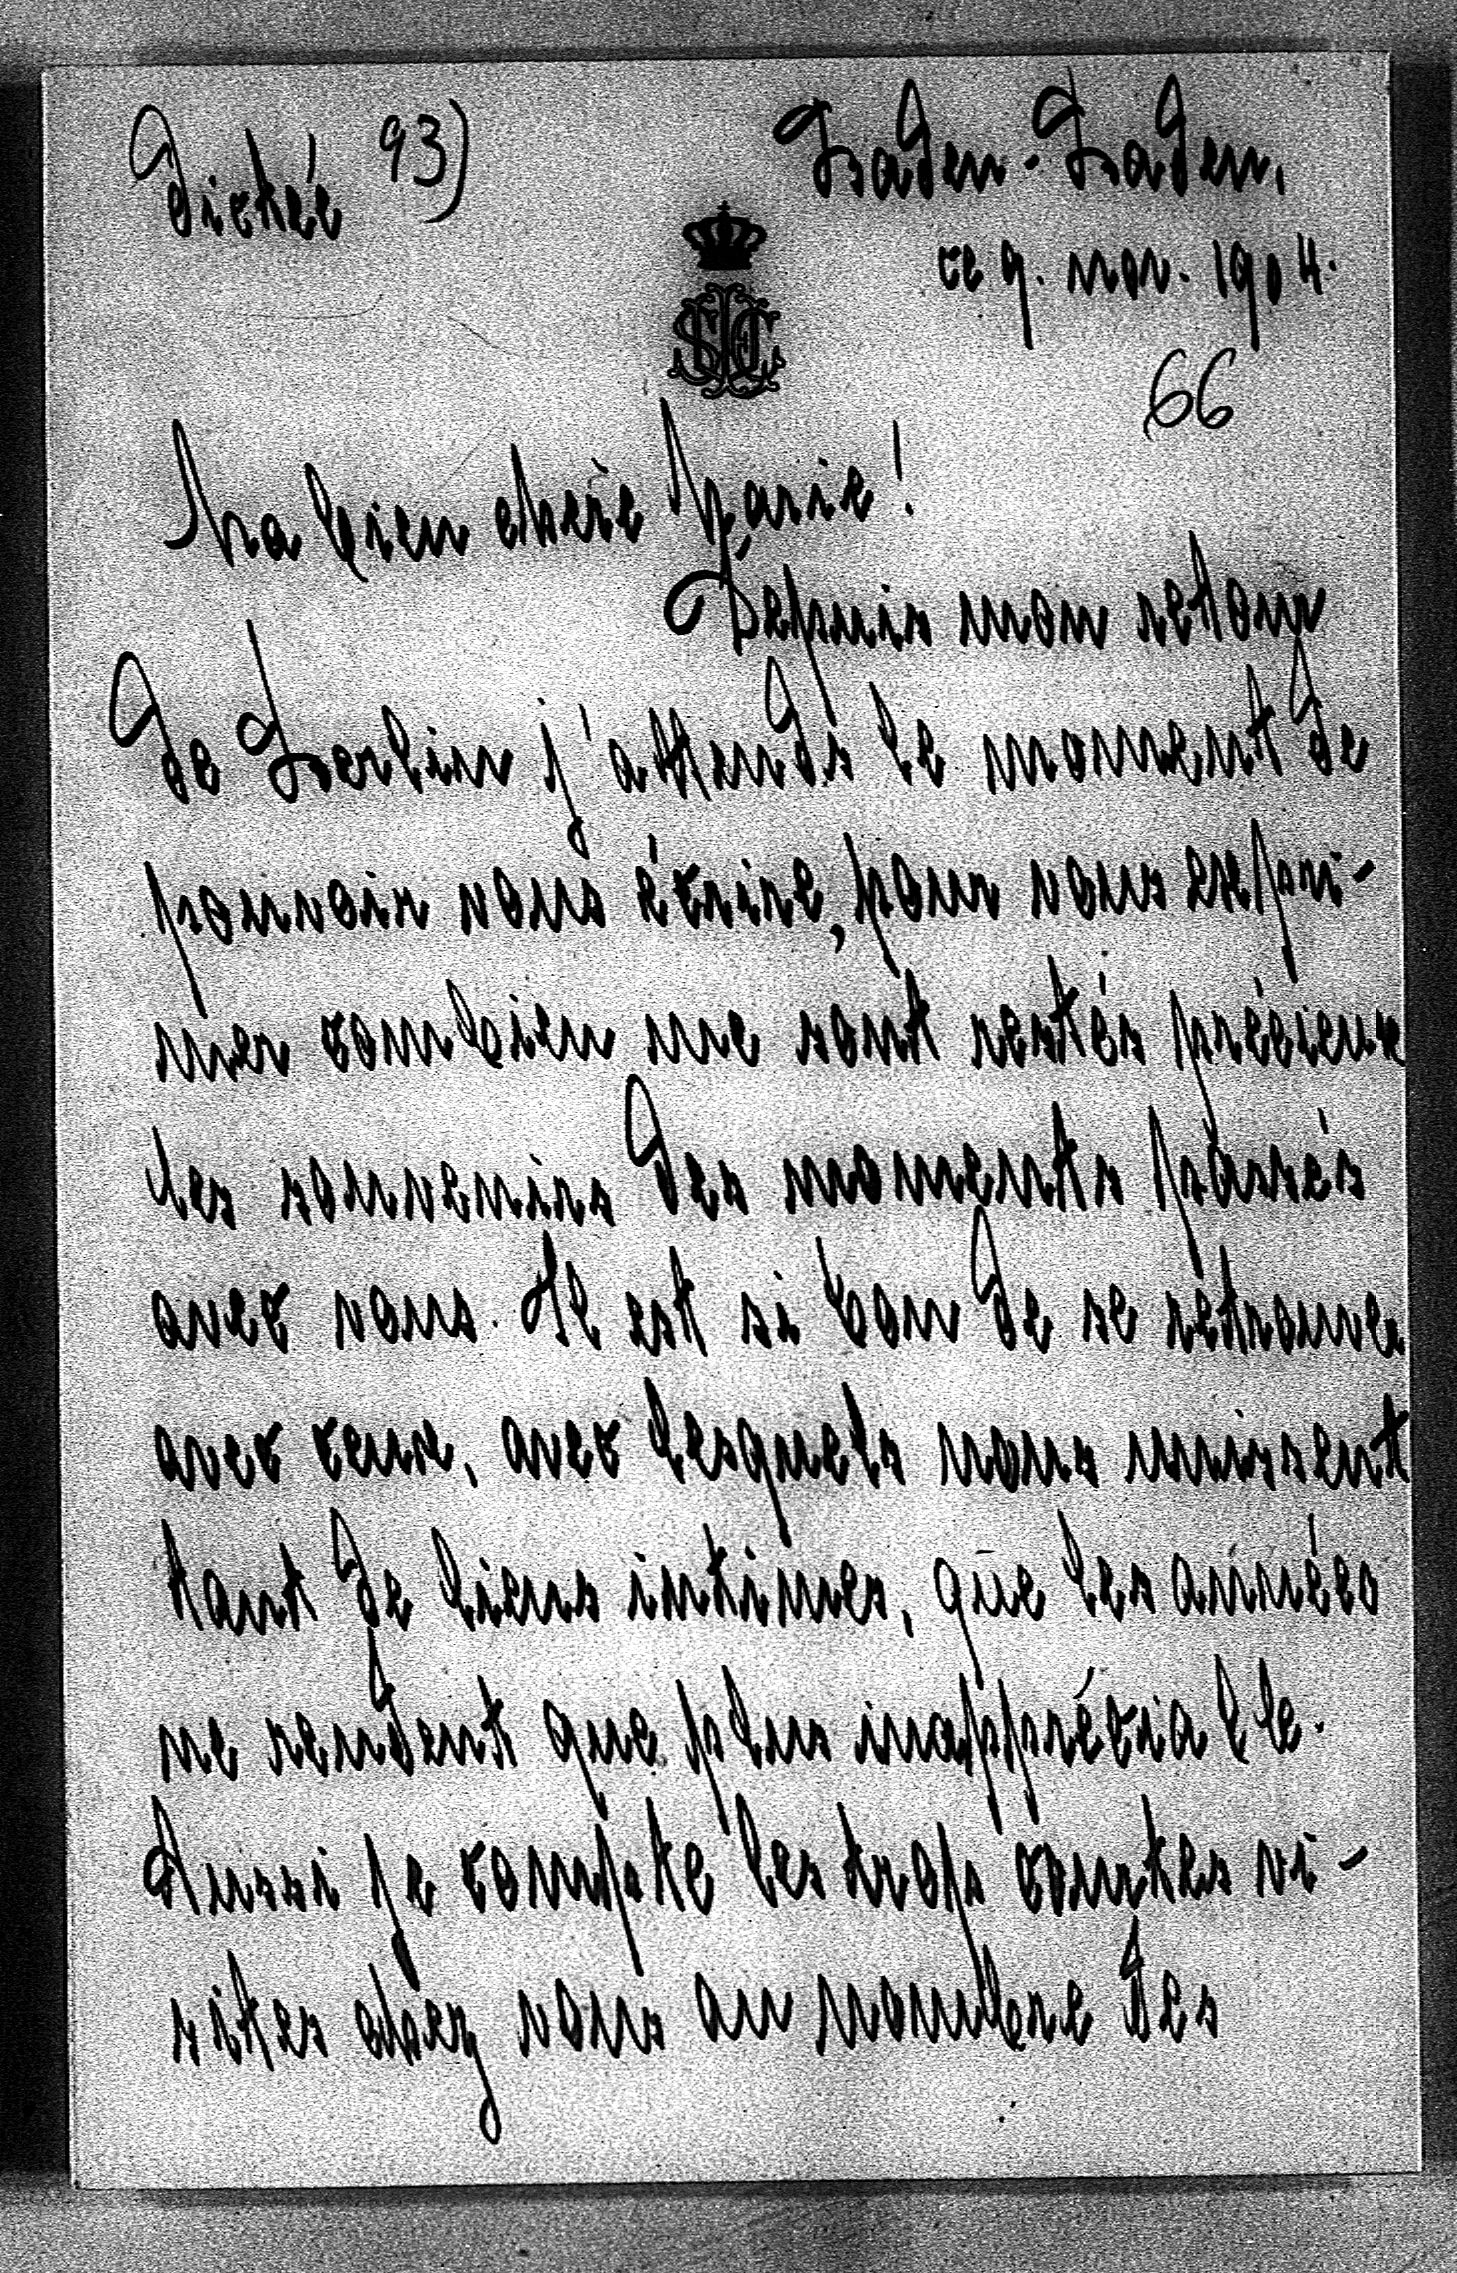 Dictée 93)
Baden-Baden,
ce 9. nov. 1904.
66
Ma bien chère Marie!
Depuis mon retour
de Berlin j'attends le moment de
pouvoir vous écrire, pour vous expri-
mer combien me sont restés précieux
les souvenirs des moments passés
avec vous. Il est si bon de se retrouver
avec ceux, avec lesquels nous unissent
tant de liens intimes, que les années
ne rendent que plus inappréciable.
Aussi je compte les trop courtes vi-
sites chez vous au nombre des